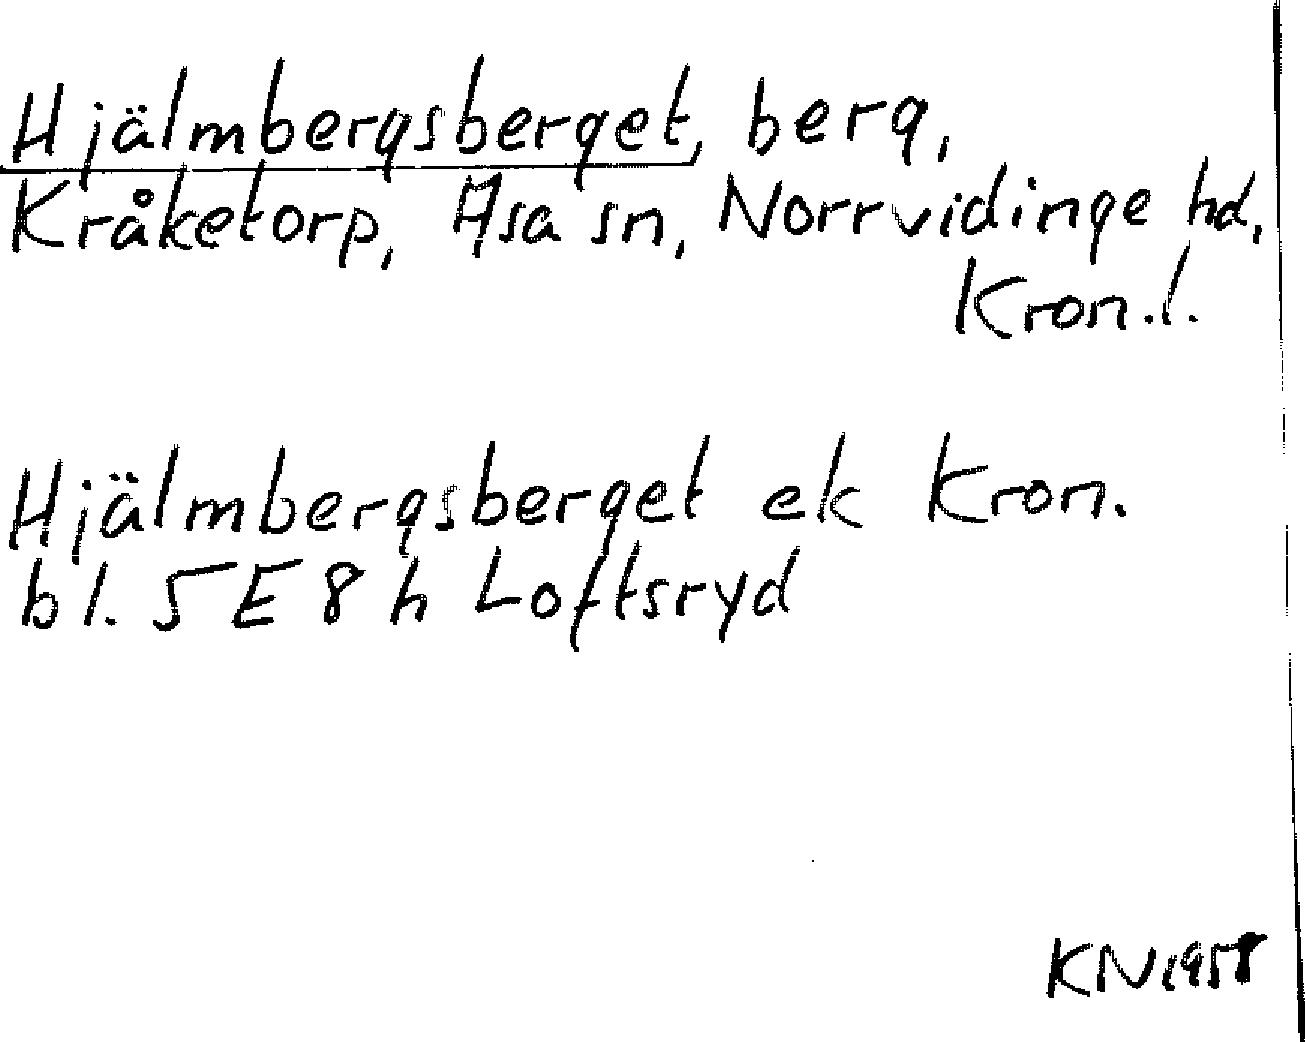 Hjälmbergsberget, berg,
Kråketorp, Asa sn, Norrvidinge hd,
Kron.l.
Hjälmbergsberget ek Kron.
bl. 5E8h Loftsryd
KN 1958